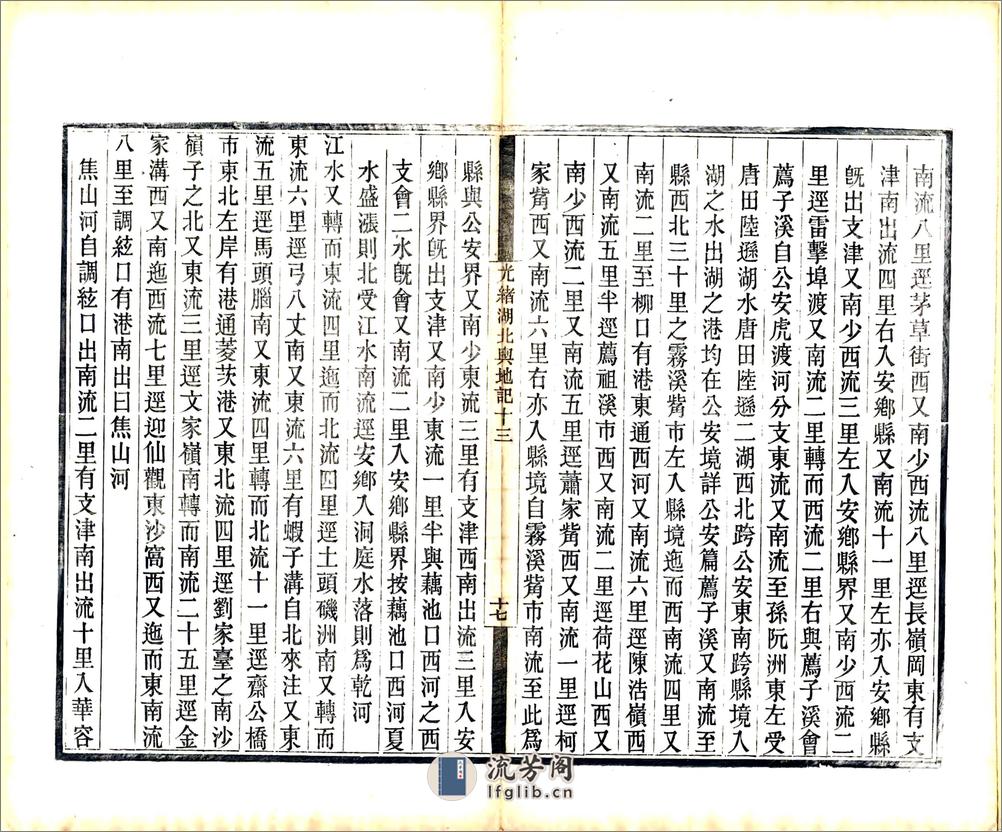 南流八里逕茅草街西又南少西流八里逕長嶺岡東有支
津南出流四里右入安鄉縣又南流十一里左亦入安鄉縣
旣出支津又南少西流三里左入安鄉縣界又南少西流二
里逕雷擊埠渡又南流二里轉而西流二里右與薦子溪會
薦子溪自公安虎渡河分支東流又南流至孫阮洲東左受
唐田陸遜湖水唐田陸遜二湖西北跨公安東南跨縣境入
湖之水出湖之港均在公安境詳公安篇薦子溪又南流至
縣西北三十里之霧溪觜市左入縣境迤而西南流四里又
南流二里至柳口有港東通西河又南流六里逕陳浩嶺西
又南流五里半逕薦祖溪市西又南流二里逕荷花山西又
南少西流二里又南流五里逕蕭家觜西又南流一里逕柯
家觜西又南流六里右亦入縣境自霧溪觜市南流至此爲
光緒湖北輿地記十三
十七
縣與公安界又南少東流三里有支津西南出流三里入安
鄉縣界旣出支津又南少東流一里半與藕池口西河之西
支會二水旣會又南流二里入安鄉縣界按藕池口西河夏
水盛漲則北受江水南流逕安鄉入洞庭水落則爲乾河
江水又轉而東流四里迤而北流四里逕土頭磯洲南又轉而
東流六里逕弓八丈南又東流六里有蝦子溝自北來注又東
流五里逕馬頭腦南又東流四里轉而北流十一里逕齋公橋
市東北左岸有港通菱茨港又東北流四里逕劉家臺之南沙
嶺子之北又東流三里逕文家嶺南轉而南流二十五里逕金
家溝西又南迤西流七里逕迎仙觀東沙窩西又迤而東南流
八里至調絃口有港南出曰焦山河
焦山河自調絃口出南流二里有支津南出流十里入華容
流芳阁
lfglib.cn